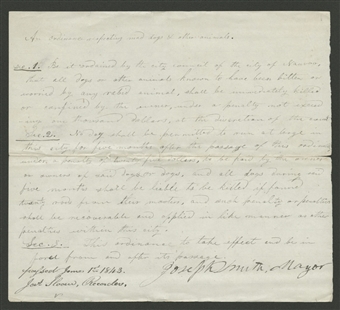 An ordinance respecting mad dogs & other animals.
Sec. 1. Be it ordained by the city council of the city of Nauvoo,
that all dogs or other animals known to have been bitten or
worried by any rabid animal, shall be immediately killed
or confined by the owner, under a penalty not exceed
ing one thousand dollars, at the discretion of the court
Sec. 2. No dog shall be permitted to run at large in
this city for five months after the passage of this ordinance
under a penalty to be paid by the owner
or owners of said dog or dogs, and all dogs during said
five months shall be liable to be killed if found
and penalty or penalties
shall be recoverable and applied in like manner as other
penalties within this city.
Sec. 3. This ordinance to take effect and be in
force from and after its passage.
passed June 1st 1843. Joseph Smith, Mayor
Recorder.